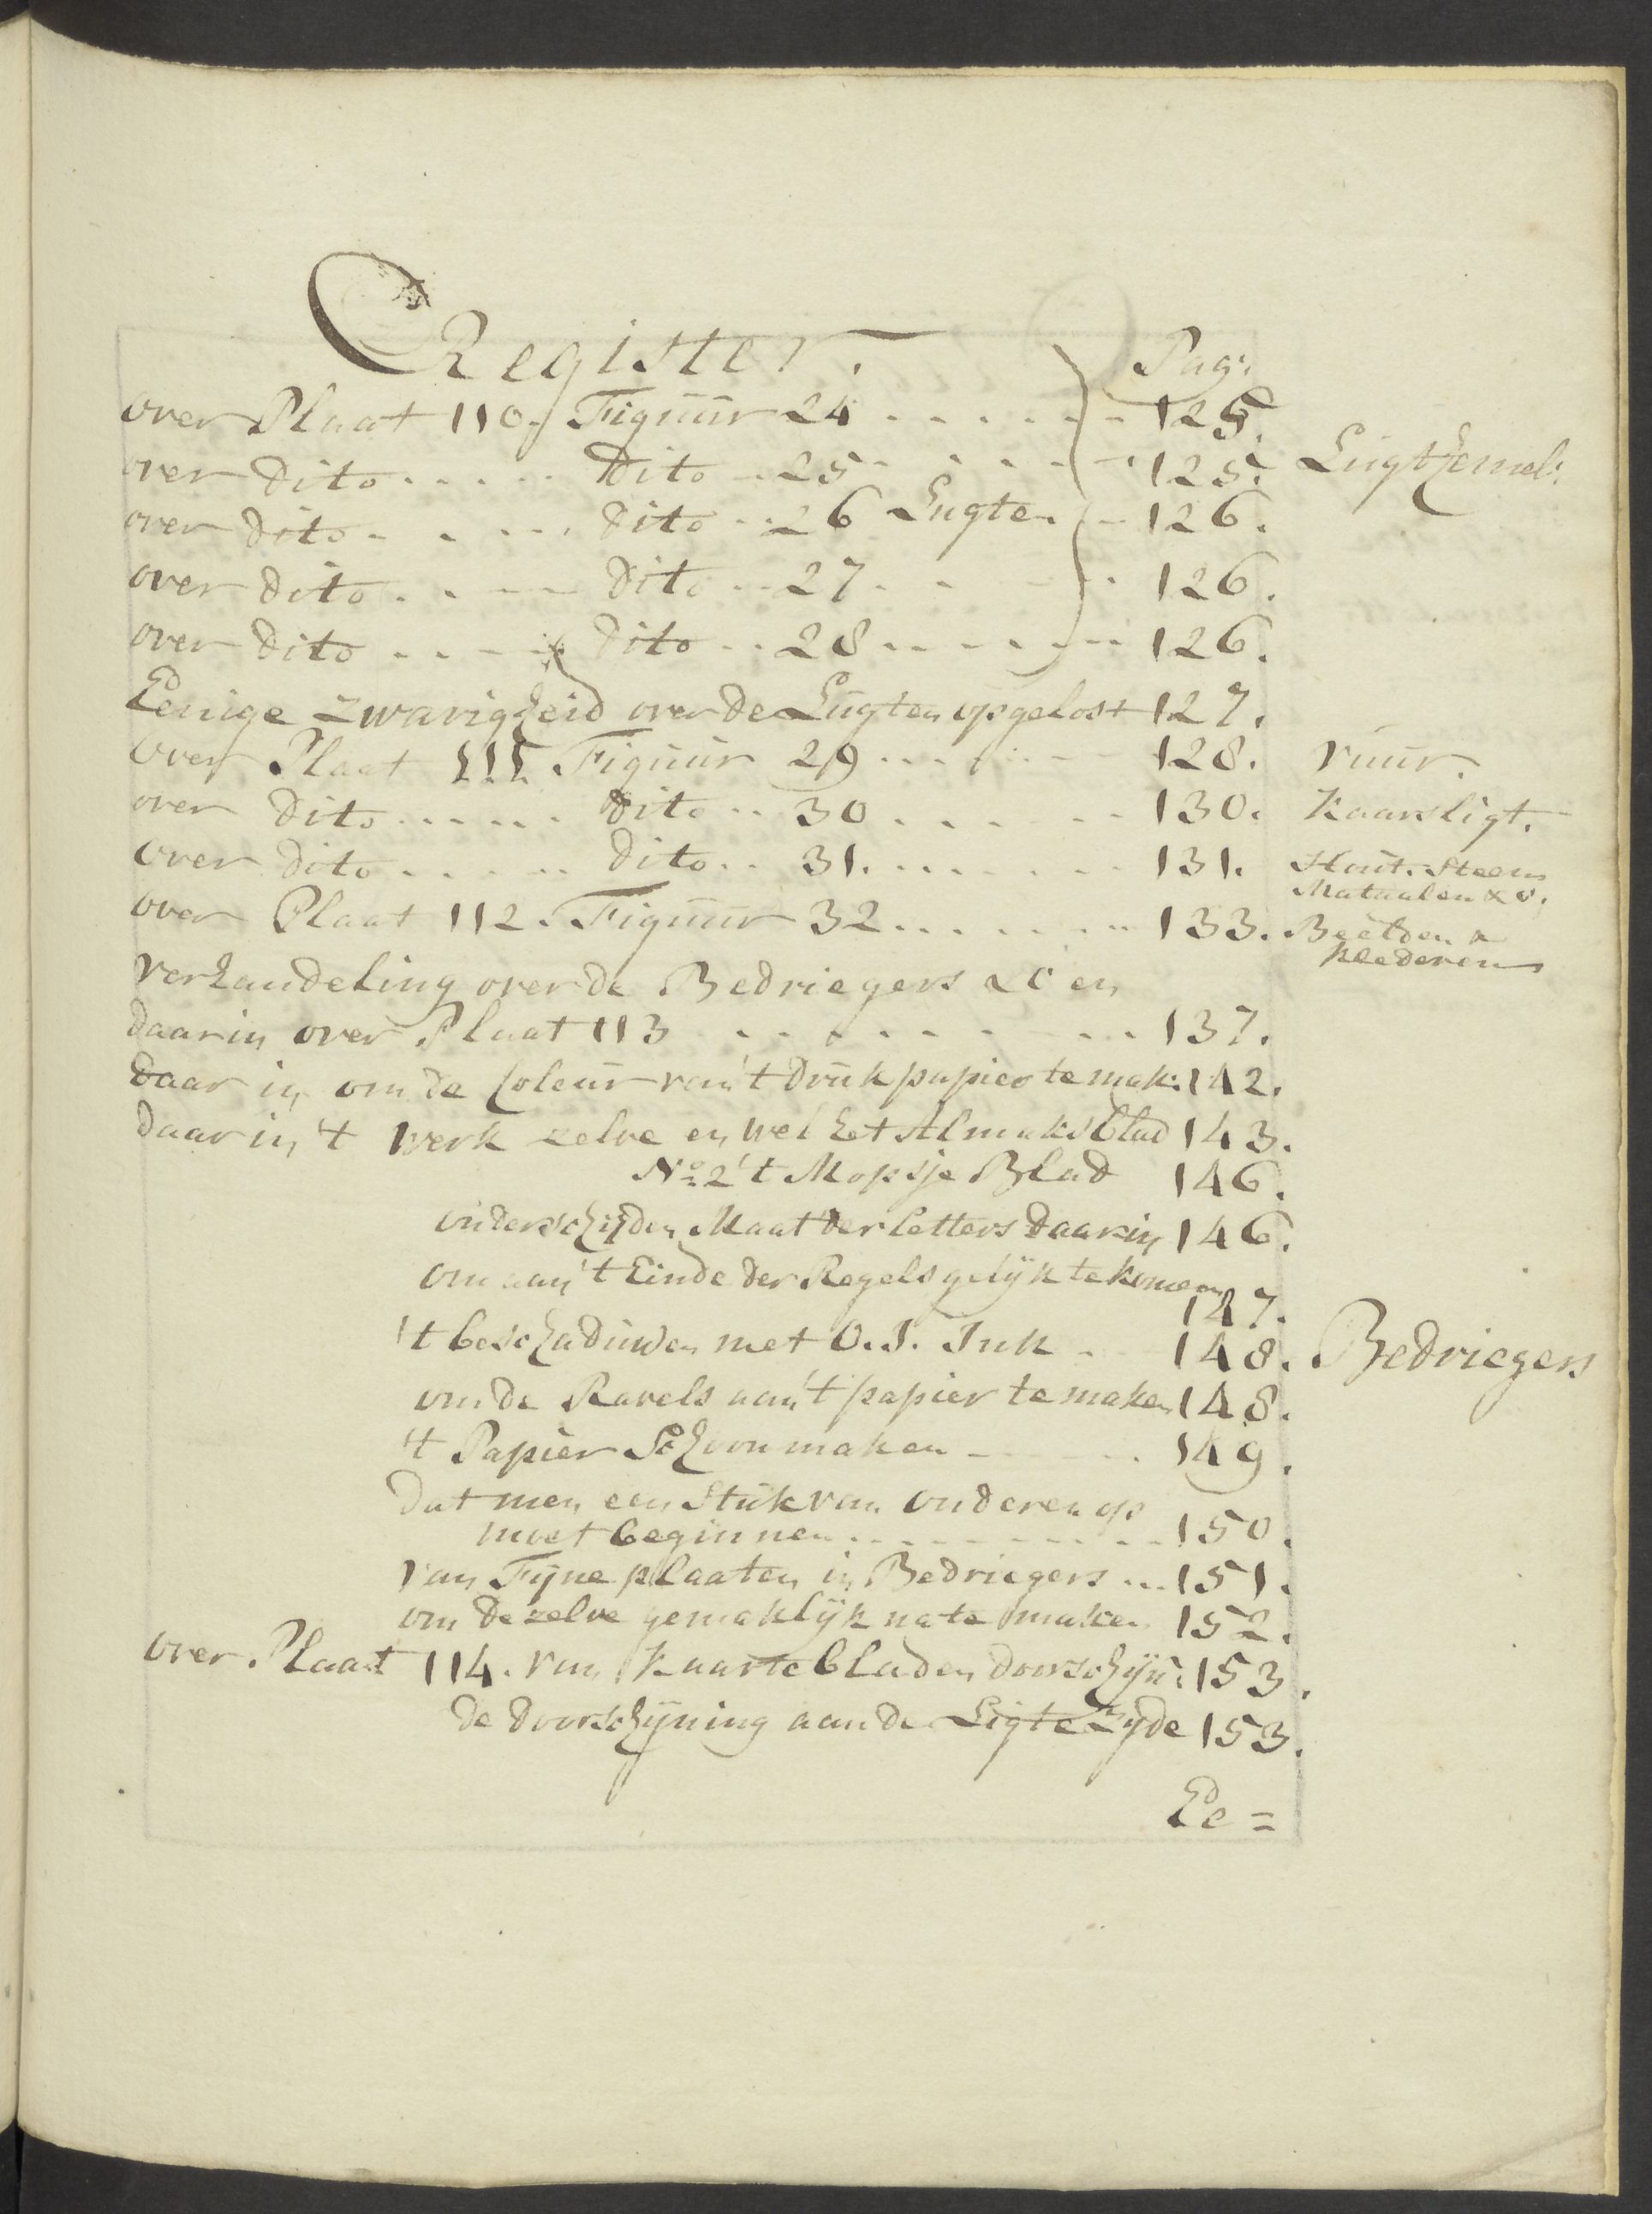 Register. Pag:
over Plaat 110. Figuur 24 . . . . . . . 125.
over dito . . . . . Dito . . 25 . . . . . . 125. Lugt hemel:
over dito . . . . . dito . . 26 Lugten . . 126.
over dito . . . . . dito . . 27 . . . . 126.
over dito . . . . . dito . . 28 . . . . . . . 126.
Eenige zwarigheid over de Lugten opgelost 127.
over Plaat 111. Figuur 29 . . . . . . 128. vuur.
over dito . . . . . dito . . 30 . . . . . . 130. Kaarsligt.
over dito . . . . . dito . . 31. . . . . . . . 131. Hout. Steen
Mataalen & c.
over Plaat 112. Figuur 32 . . . . . . . 133. Beelden &
kleederen
verhandeling over de Bedriegers &c en
daarin over Plaat 113 . . . . . . . . . 137.
daar in om de Coleur van 't drukpapier te mak: 142.
daar in 't werk zelve en wel het Almaksblad 143.
No. 2 't Mopsje Blad 146.
onderschijden Maat der letters daarin 146.
om aan 't Einde der Regels gelijk te komen
147.
't beschaduwen met O. I. Ink . . 148. Bedriegers
om de Ravels aan 't papier te maken 148.
't Papier Schoon maken . . . . 149.
dat men een Stuk van onderen op
moet beginnen . . . . . . . . . . 150.
van Fijne plaaten in Bedriegers . . . 151.
om dezelve gemaklijk na te maken 152.
over Plaat 114. van Kaarte bladen doorschijn: 153.
de doorschijning aan de Ligte Zyde 153.
Ee =